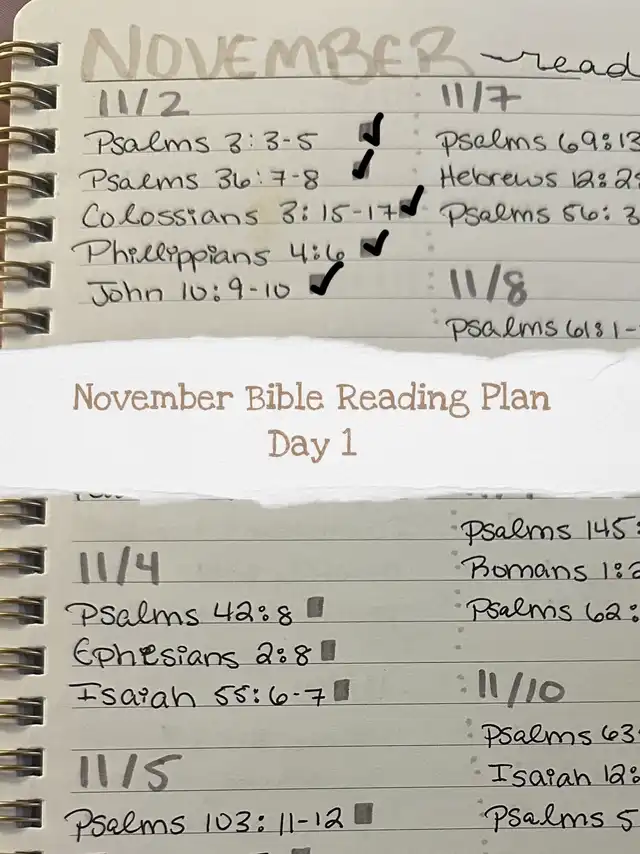 NOVEMBER read
11/2
Psalms 3:3-5
Psalms 36:7-8
Colossians 3:15-17
Phillippians 4:6
John 10:9-10
11/7
Psalms 69:13
Hebrews 12:2
Psalms 56:3
11/8
Psalms 61:1-
November Bible Reading Plan
Day 1
11/4
Psalms 42:8
Ephesians 2:8
Isaiah 55:6-7
11/5
Psalms 103:11-12
Psalms 145:
Romans 1:2
Psalms 62:
11/10
Psalms 63
Isaiah 12:
Psalms 5